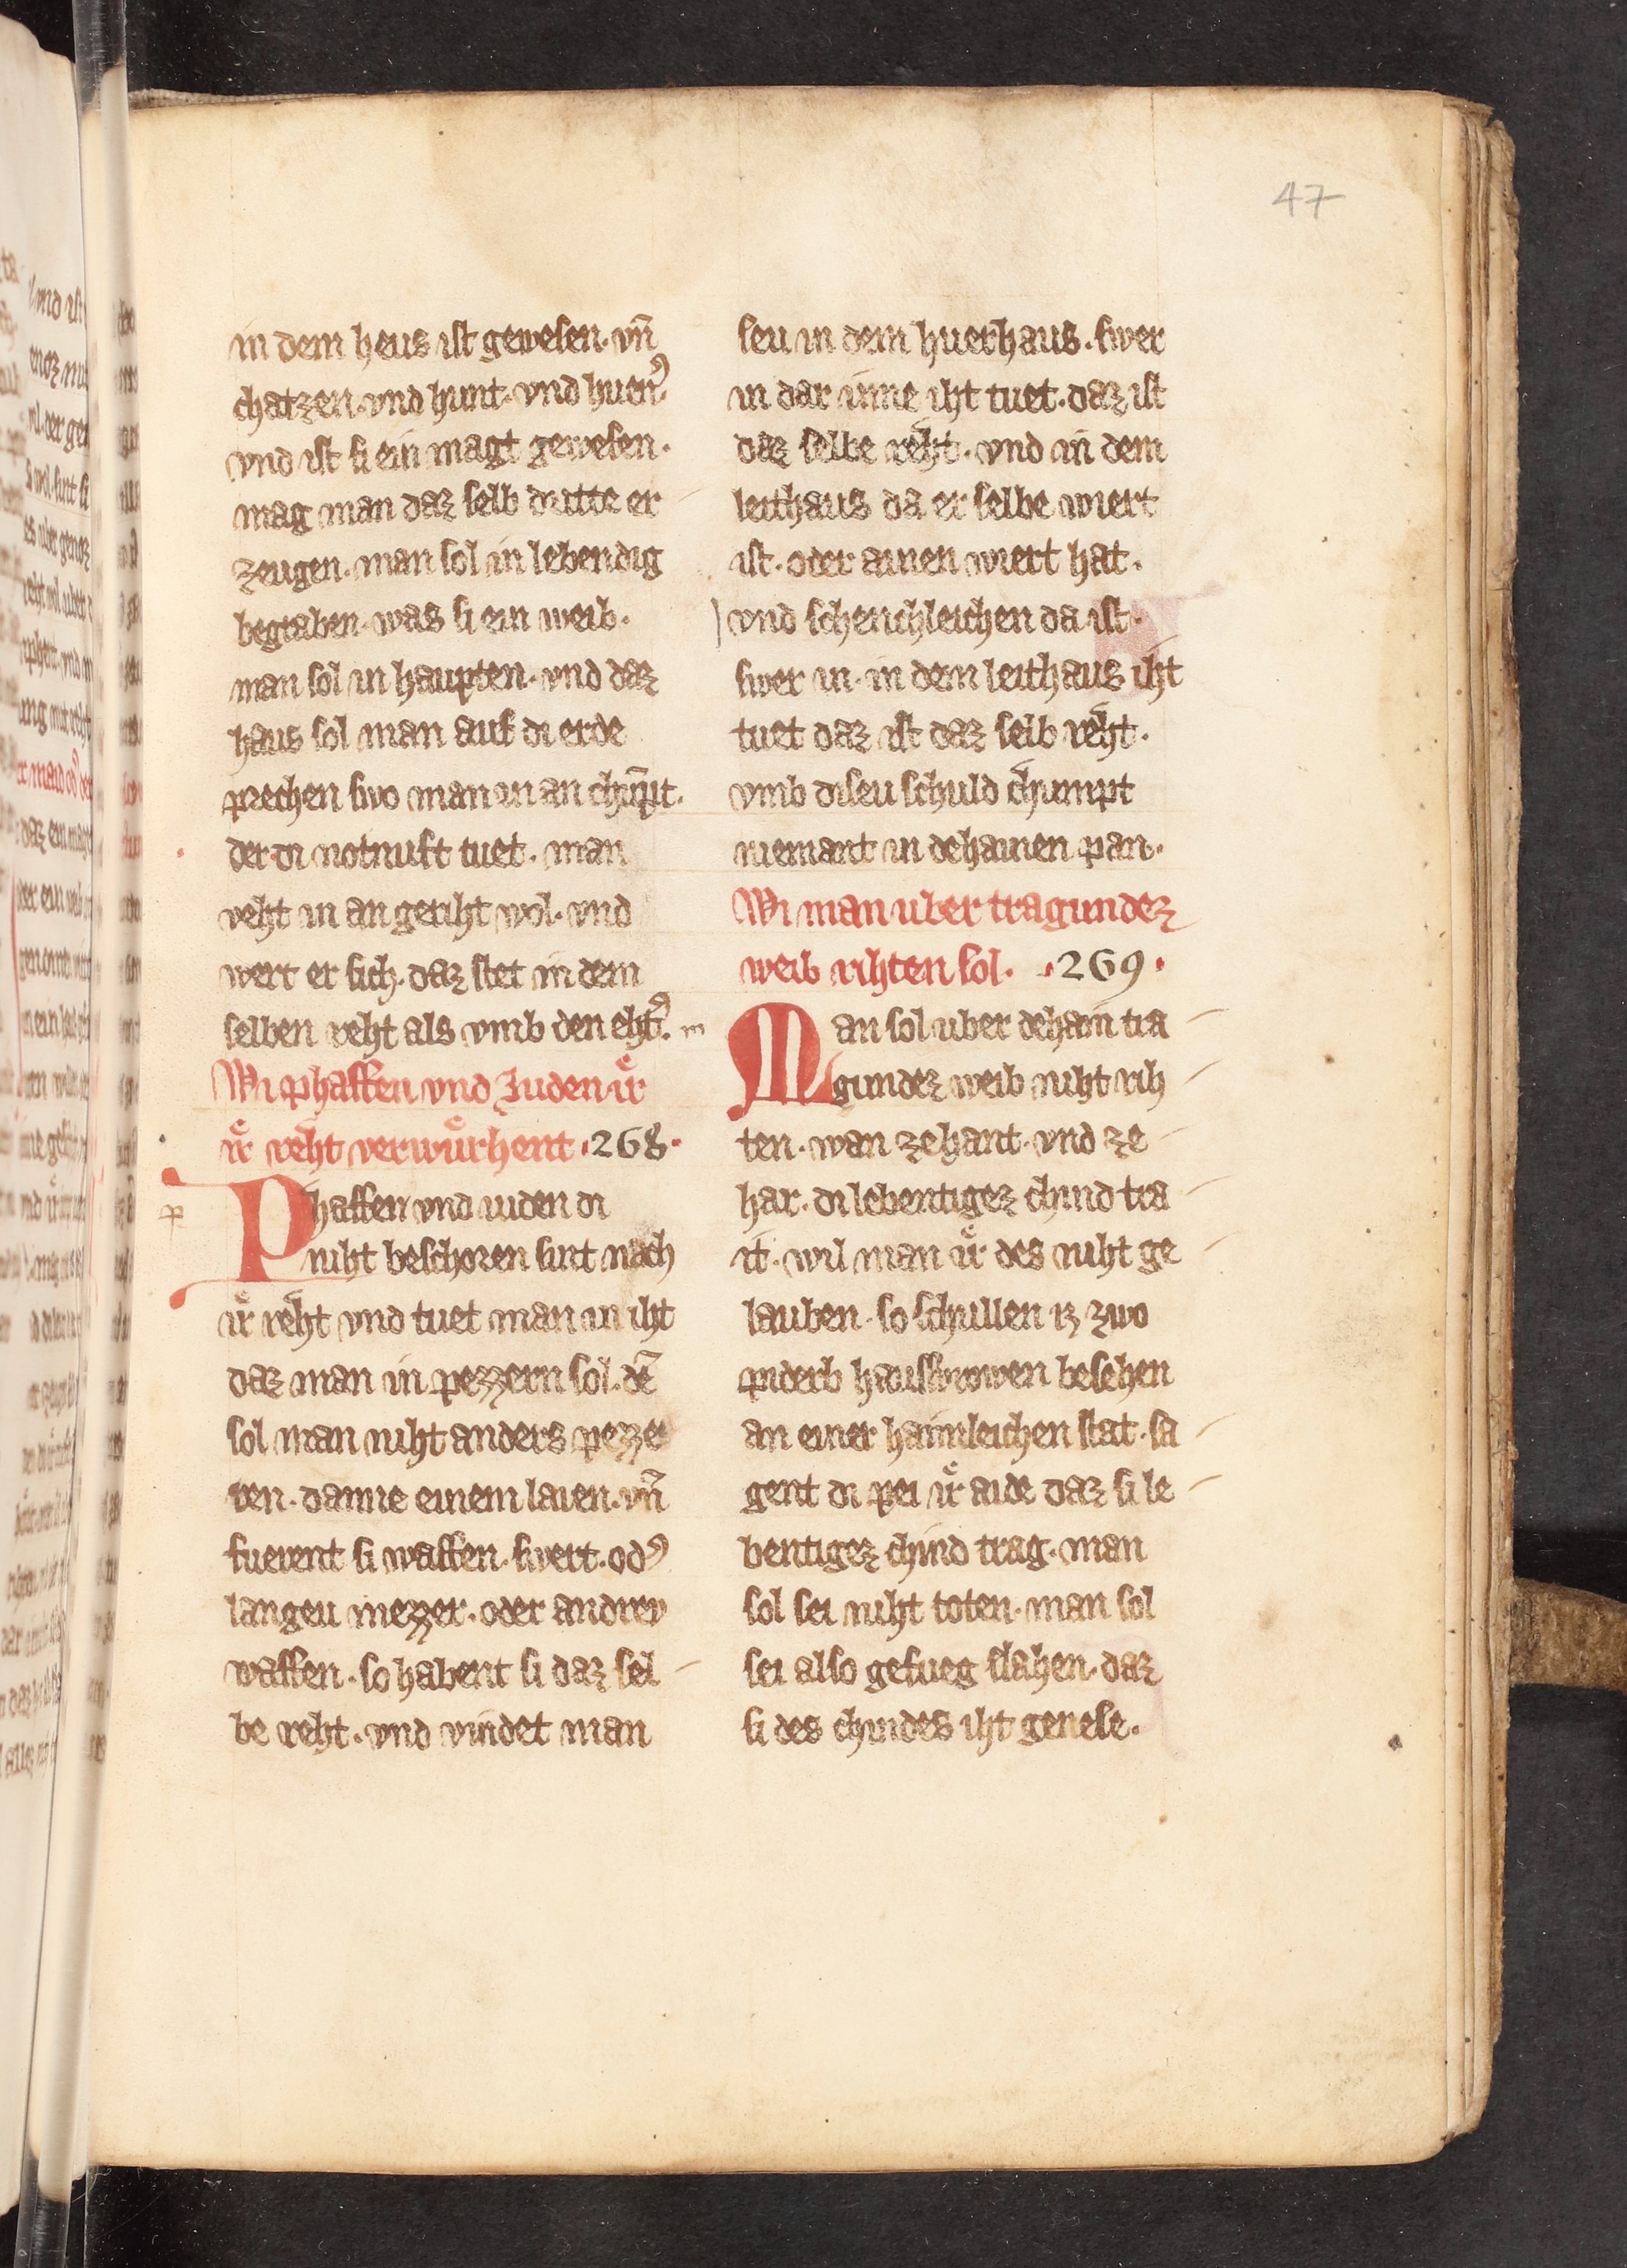 47
in dem heus ist gewesen · vn̄
chatzen · vnd hunt · vnd huen᾽
vnd ist si ein magt gewesen ·
mag man daz selb dritte er
zeugen · man sol in lebendig
begraben · was si ein weib ·
man sol in haupten · vnd daz
haus sol man auf di erde
prechen swo man in an chūpt ·
der di notnuft tuet · man
veht in an geriht wol · vnd
wert er sich · daz stet in dem
selben reht als vmb den eht᾽ ·
Wi phaffen vnd Juden ir
ir reht verwurhent · 268 ·
Phaffen vnd iuden di
niht beschoren sint nach
ir reht vnd tuet man in iht
daz man in pezzern sol · dē
sol man niht anders pezze
ren · danne einem laien · vn̄
fuerent si waffen · swert · od᾽
langeu mezzer · oder andrev
waffen · so habent si daz sel
be reht · vnd vindet man
seu in dem huerhaus · swer
in dar inne iht tuet · daz ist
daz selbe reht · vnd in dem
leithaus da er selbe wiert
ist · oder ainen wiert hat ·
vnd schenchleichen da ist ·
swer in · in dem leithaus iht
tuet daz ist daz selb reht ·
vmb diseu schuld chumpt
niemant in dehainen pan ·
Wi man uber tragundez
weib rihten sol · · 269 ·
Man sol uber dehain tra
gundez weib niht rih
ten · wan ze hant · vnd ze
har · di lebentigez chind tra
it · wil man ir des niht ge
lauben · so schullen iz zwo
piderb hausfrowen besehen
an einer haimleichen stat · sa
gent di pei ir aide daz si le
bentigez chind trag · man
sol sei niht toten · man sol
sei also gefueg slahen · daz
si des chindes iht genese ·